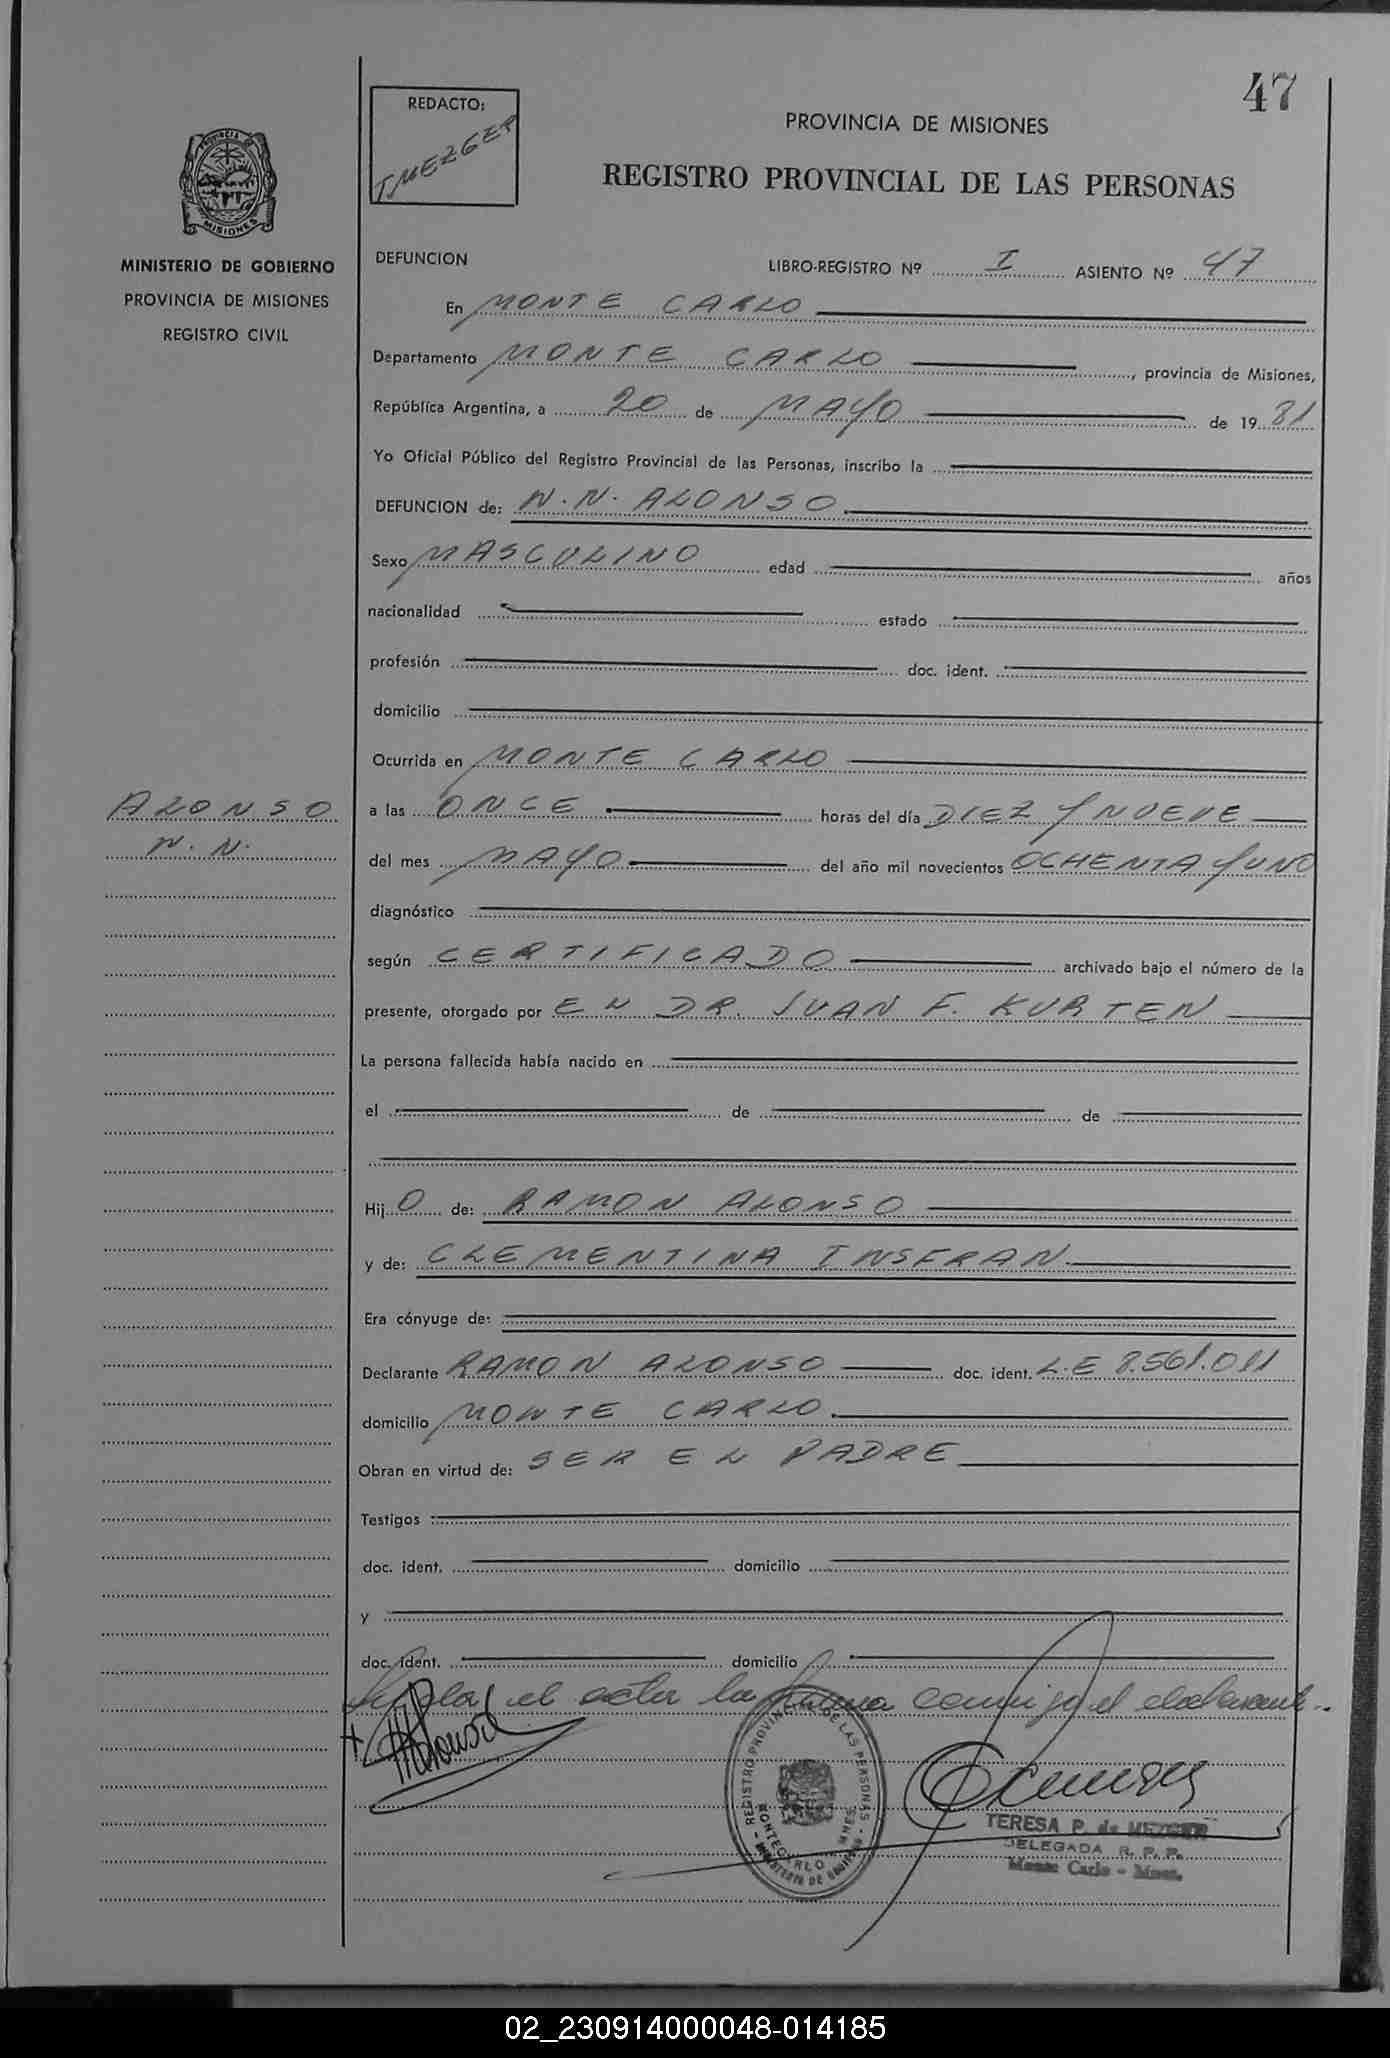 47
REDACTO:
TMEZGER
PROVINCIA DE MISIONES
REGISTRO PROVINCIAL DE LAS PERSONAS
PROVINCIA DE
MISIONES
MINISTERIO DE GOBIERNO
PROVINCIA DE MISIONES
REGISTRO CIVIL
DEFUNCION LIBRO-REGISTRO Nº I ASIENTO Nº 47
En MONTE CARLO
Departamento MONTE CARLO, provincia de Misiones,
República Argentina, a 20 de MAYO de 19 81
Yo Oficial Público del Registro Provincial de las Personas, inscribo la
DEFUNCION de: N.N. ALONSO
Sexo MASCULINO edad años
nacionalidad estado
profesión doc. ident.
domicilio
Ocurrida en MONTE CARLO
ALONSO
N.N.
a las ONCE horas del día DIEZ Y NUEVE
del mes MAYO del año mil novecientos OCHENTA Y UNO
diagnóstico
según CERTIFICADO archivado bajo el número de la
presente, otorgado por EL DR. JUAN F. KURTEN
La persona fallecida había nacido en
el de de
Hij O de: RAMON ALONSO
y de: CLEMENTINA INSFRAN.
Era cónyuge de:
Declarante RAMON ALONSO doc. ident. L.E 8.561.011
domicilio MONTE CARLO.
Obran en virtud de: SER EL PADRE
Testigos
doc. ident. domicilio
y
doc. ident. domicilio
el acta la firma conmigo el declarante..
REGISTRO PROVINCIAL DE LAS PERSONAS
MONTECARLO MNES.
MINISTERIO DE GOBIERNO
TERESA P. de MEZGER
DELEGADA R. P. P.
Monte Carlo - Mnes.
02_230914000048-014185